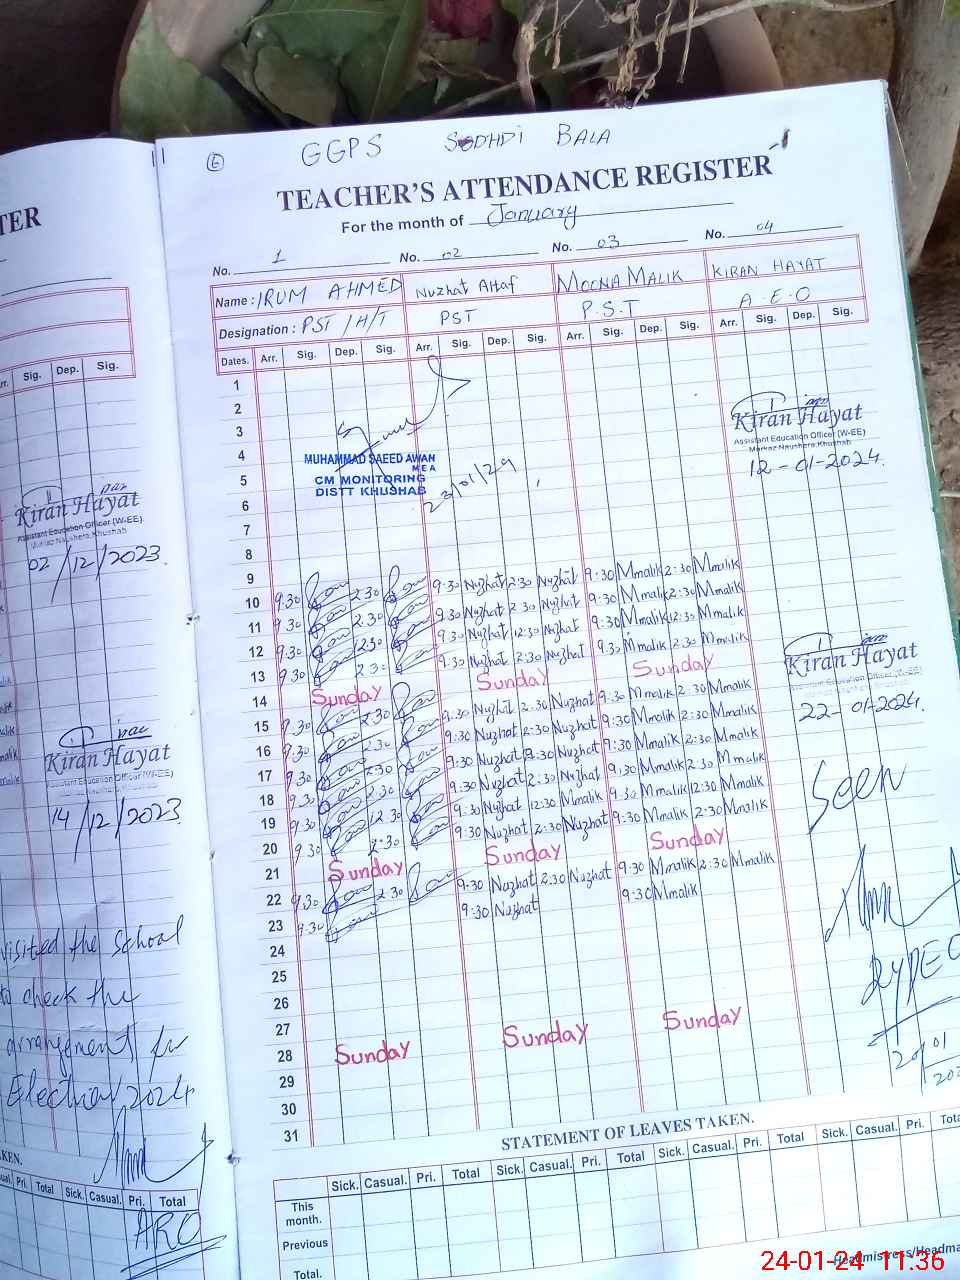 6 GGPS SODHDI BALA
TEACHER'S ATTENDANCE REGISTER
For the month of January
No. 1 No. 02 No. 03 No. 04
Name : IRUM AHMED Nuzhat Altaf MOONA MALIK KIRAN HAYAT
Designation : PST / H/T PST P.S.T A.E.O
Dates. Arr. Sig. Dep. Sig. Arr. Sig. Dep. Sig. Arr. Sig. Dep. Sig. Arr. Sig. Dep. Sig.
1
2
3
4
5
6
7
8
MUHAMMAD SAEED AWAN
MEA
CM MONITORING
DISTT KHUSHAB
Kiran Hayat
Assistant Education Officer (W-EE)
Markaz Naushera Khushab
12-01-2024.
9
10 9:30 2:30 9:30 Nuzhat 2:30 Nuzhat 9:30 Mmalik 2:30 Mmalik
11 9:30 2:30 9:30 Nuzhat 2:30 Nuzhat 9:30 Mmalik 2:30 Mmalik
12 9:30 12:30 9:30 Nuzhat 12:30 Nuzhat 9:30 Mmalik 12:30 Mmalik
13 9:30 2:30 9:30 Nuzhat 2:30 Nuzhat 9:30 Mmalik 2:30 Mmalik
14 Sunday Sunday Sunday
15 9:30 2:30 9:30 Nuzhat 2:30 Nuzhat 9:30 Mmalik 2:30 Mmalik
16 9:30 2:30 9:30 Nuzhat 2:30 Nuzhat 9:30 Mmalik 2:30 Mmalik
17 9:30 2:30 9:30 Nuzhat 2:30 Nuzhat 9:30 Mmalik 2:30 Mmalik
18 9:30 2:30 9:30 Nuzhat 2:30 Nuzhat 9:30 Mmalik 2:30 Mmalik
19 9:30 12:30 9:30 Nuzhat 12:30 Mmalik 9:30 Mmalik 12:30 Mmalik
20 9:30 2:30 9:30 Nuzhat 2:30 Nuzhat 9:30 Mmalik 2:30 Mmalik
21 Sunday Sunday Sunday
22 9:30 2:30 9:30 Nuzhat 2:30 Nuzhat 9:30 Mmalik 2:30 Mmalik
23 9:30 9:30 Nuzhat 9:30 Mmalik
24
25
26
27
28 Sunday Sunday Sunday
29
30
31
Kiran Hayat
Assistant Education Officer (W-EE)
22-01-2024.
Seen
STATEMENT OF LEAVES TAKEN.
Sick. Casual. Pri. Total Sick. Casual. Pri. Total Sick. Casual. Pri. Total Sick. Casual. Pri.
This
month.
Previous
Total.
Headmistress/Headma
Sig. Dep. Sig.
Kiran Hayat
Assistant Education Officer (W-EE)
Markaz Naushera Khushab
02/12/2023.
Kiran Hayat
Assistant Education Officer (W-EE)
14/12/2023.
visited the School
to check the
arrangement for
Election 2024
Pri. Total Sick. Casual. Pri. Total
ARO
24-01-24 11:36